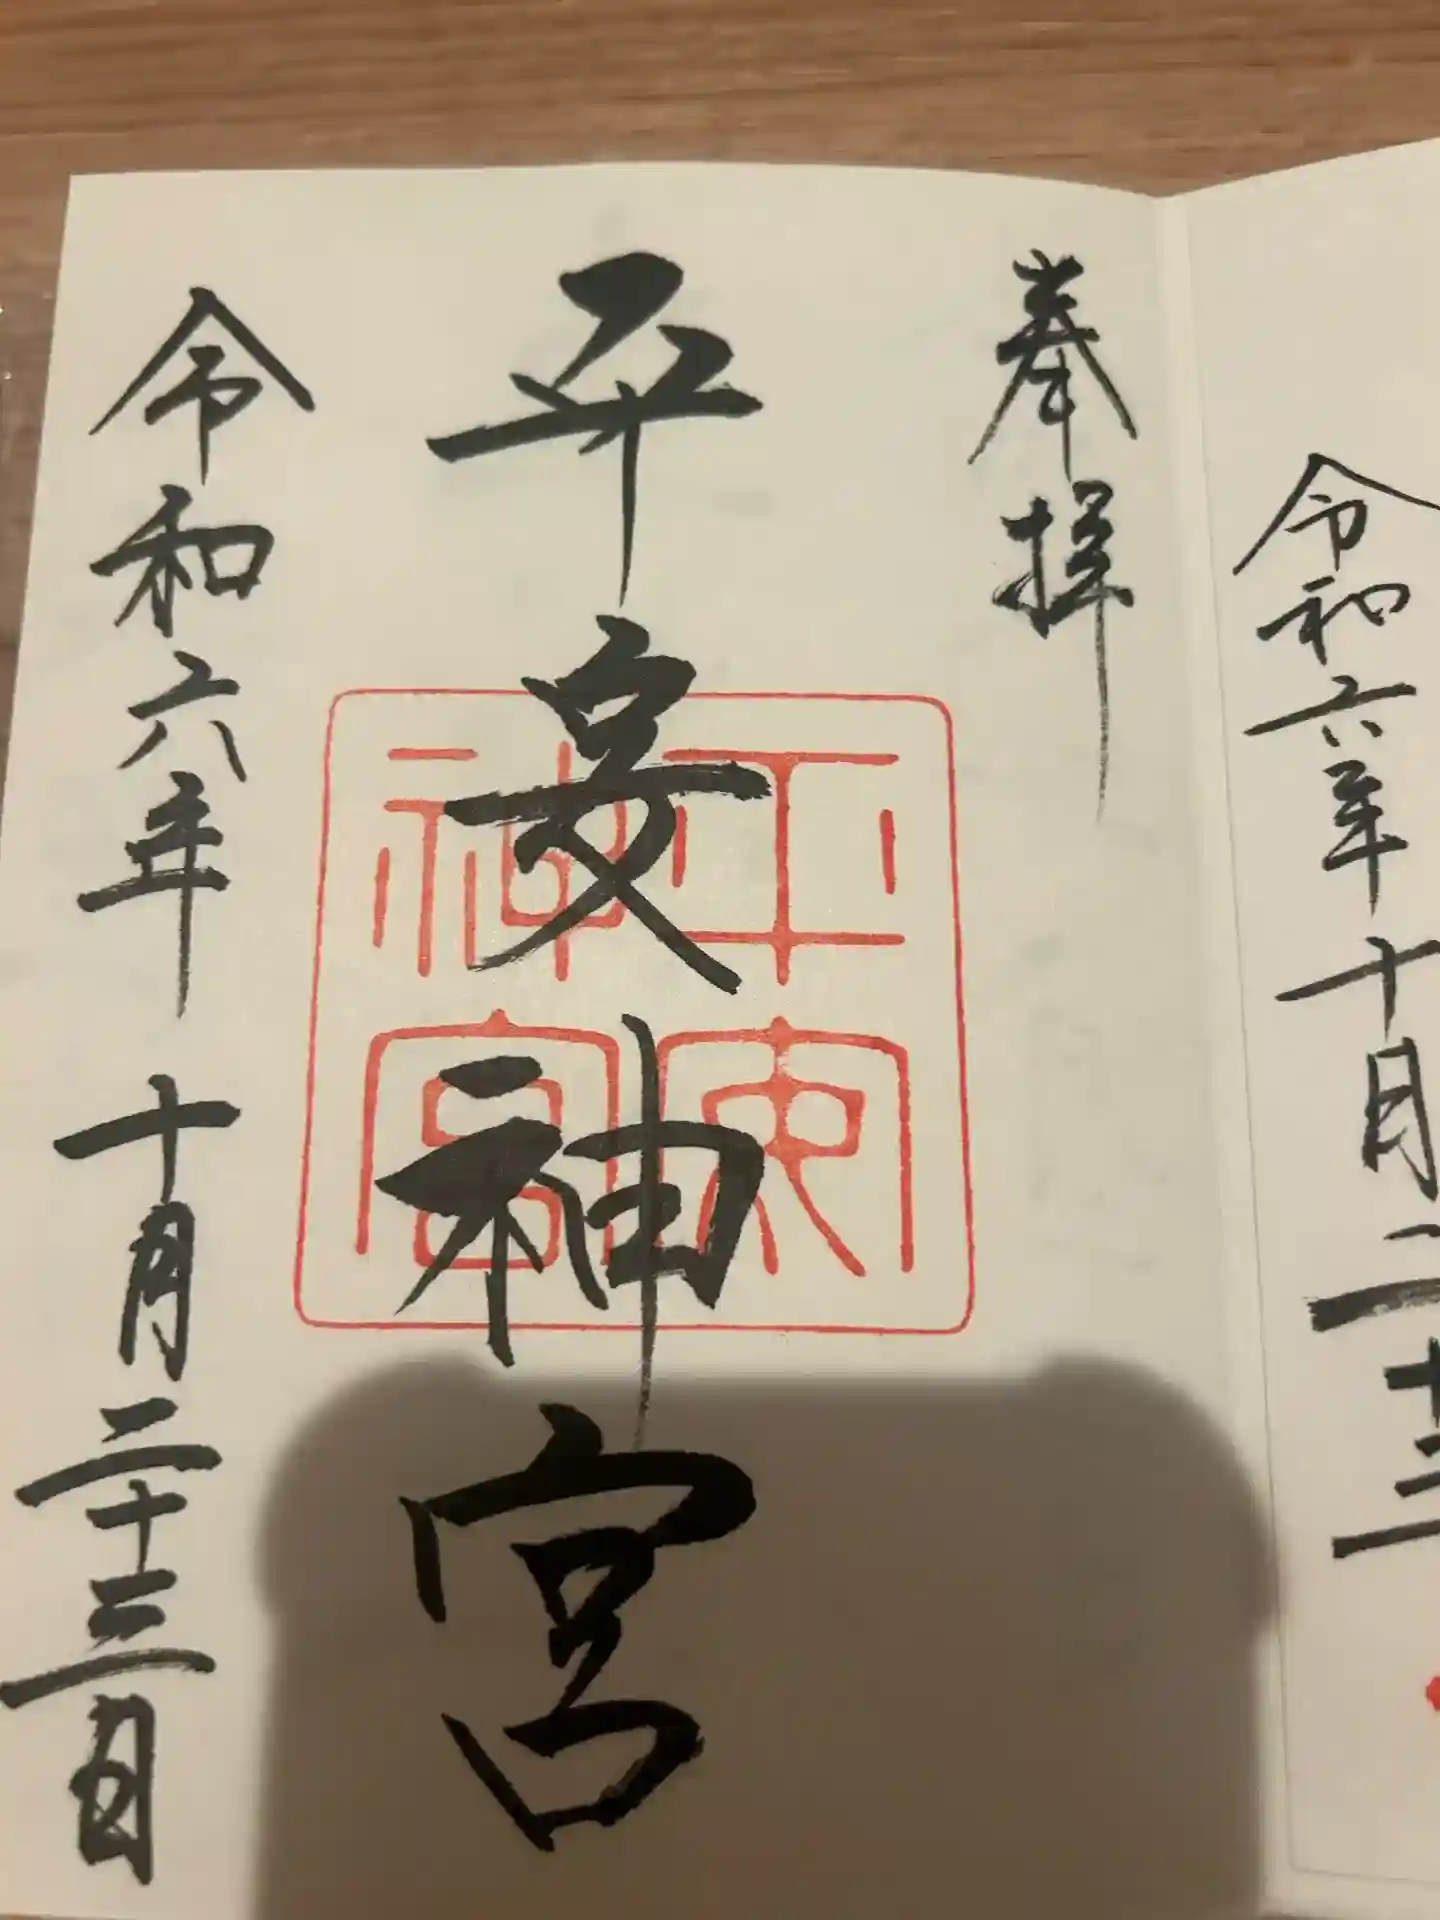 奉拝
平安神宮
平安神宮
令和六年 十月二十三日
令和六年十月二十三